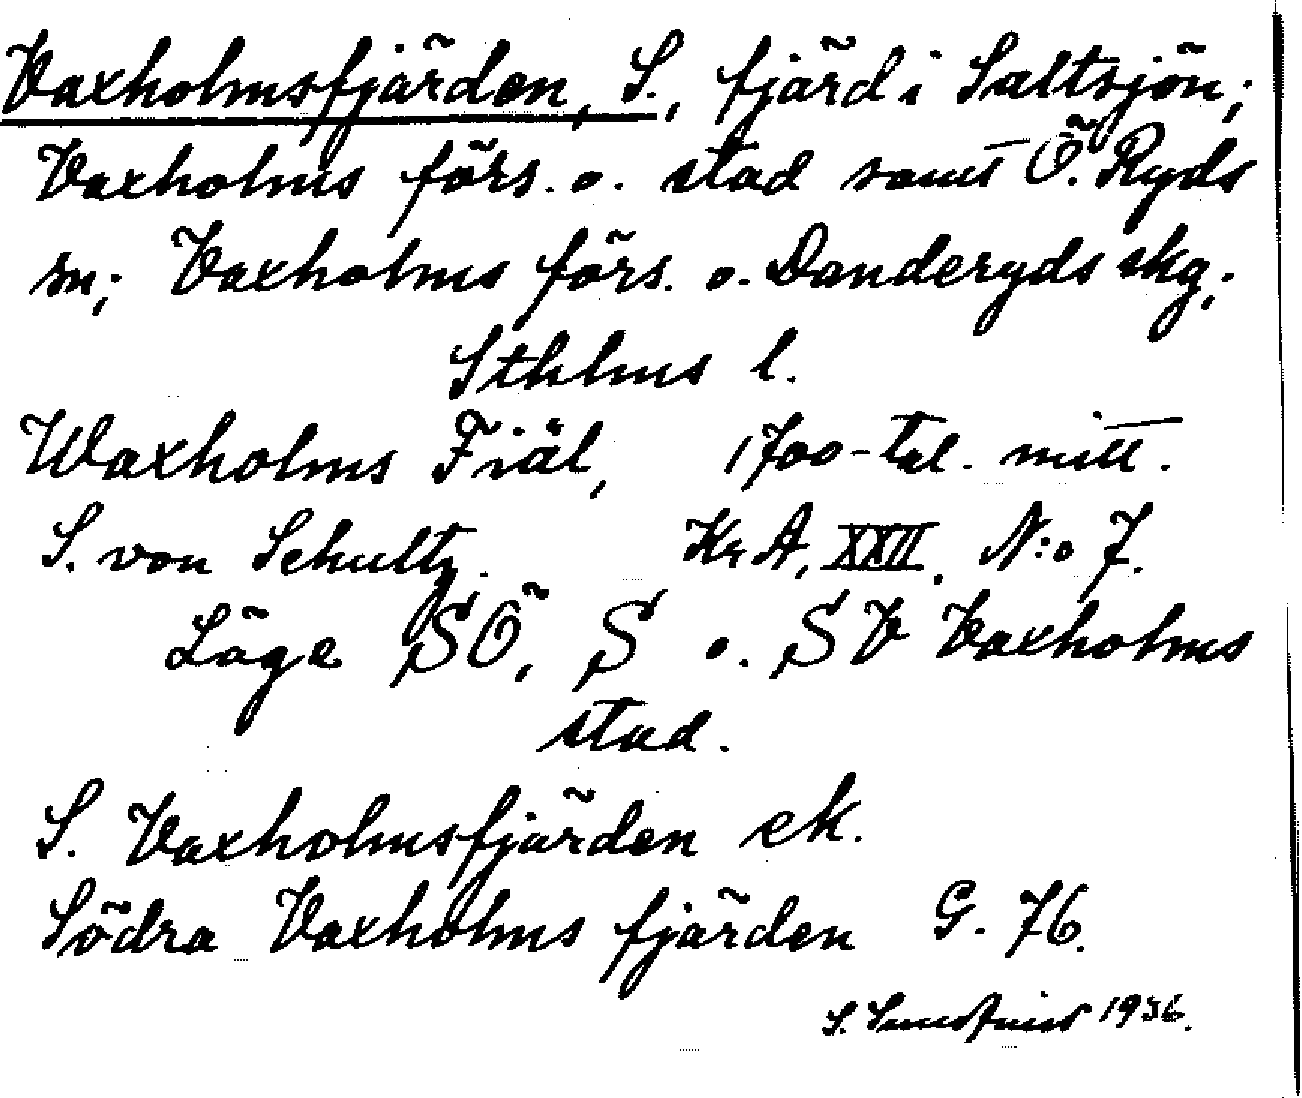 Vaxholmsfjärden, S., fjärd i Saltsjön;
Vaxholms förs. o. stad samt Ö. Ryds
sn; Vaxholms förs. o. Danderyds skg;
Sthlms l.
Waxholms Fiäl, 1700-tal. mitt.
S. von Schultz. Kr A, XXII. N:o 7.
Läge SÖ, S o. SV Vaxholms
stad.
S. Vaxholmsfjärden ek.
Södra Vaxholms fjärden G. 76.
S. 1936.